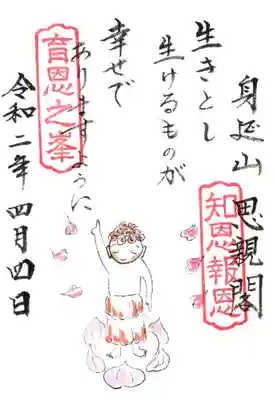 身延山 思親閣
知恩報恩
生きとし
生けるものが
幸せで
ありますように
育恩之峯
令和二年 四月四日